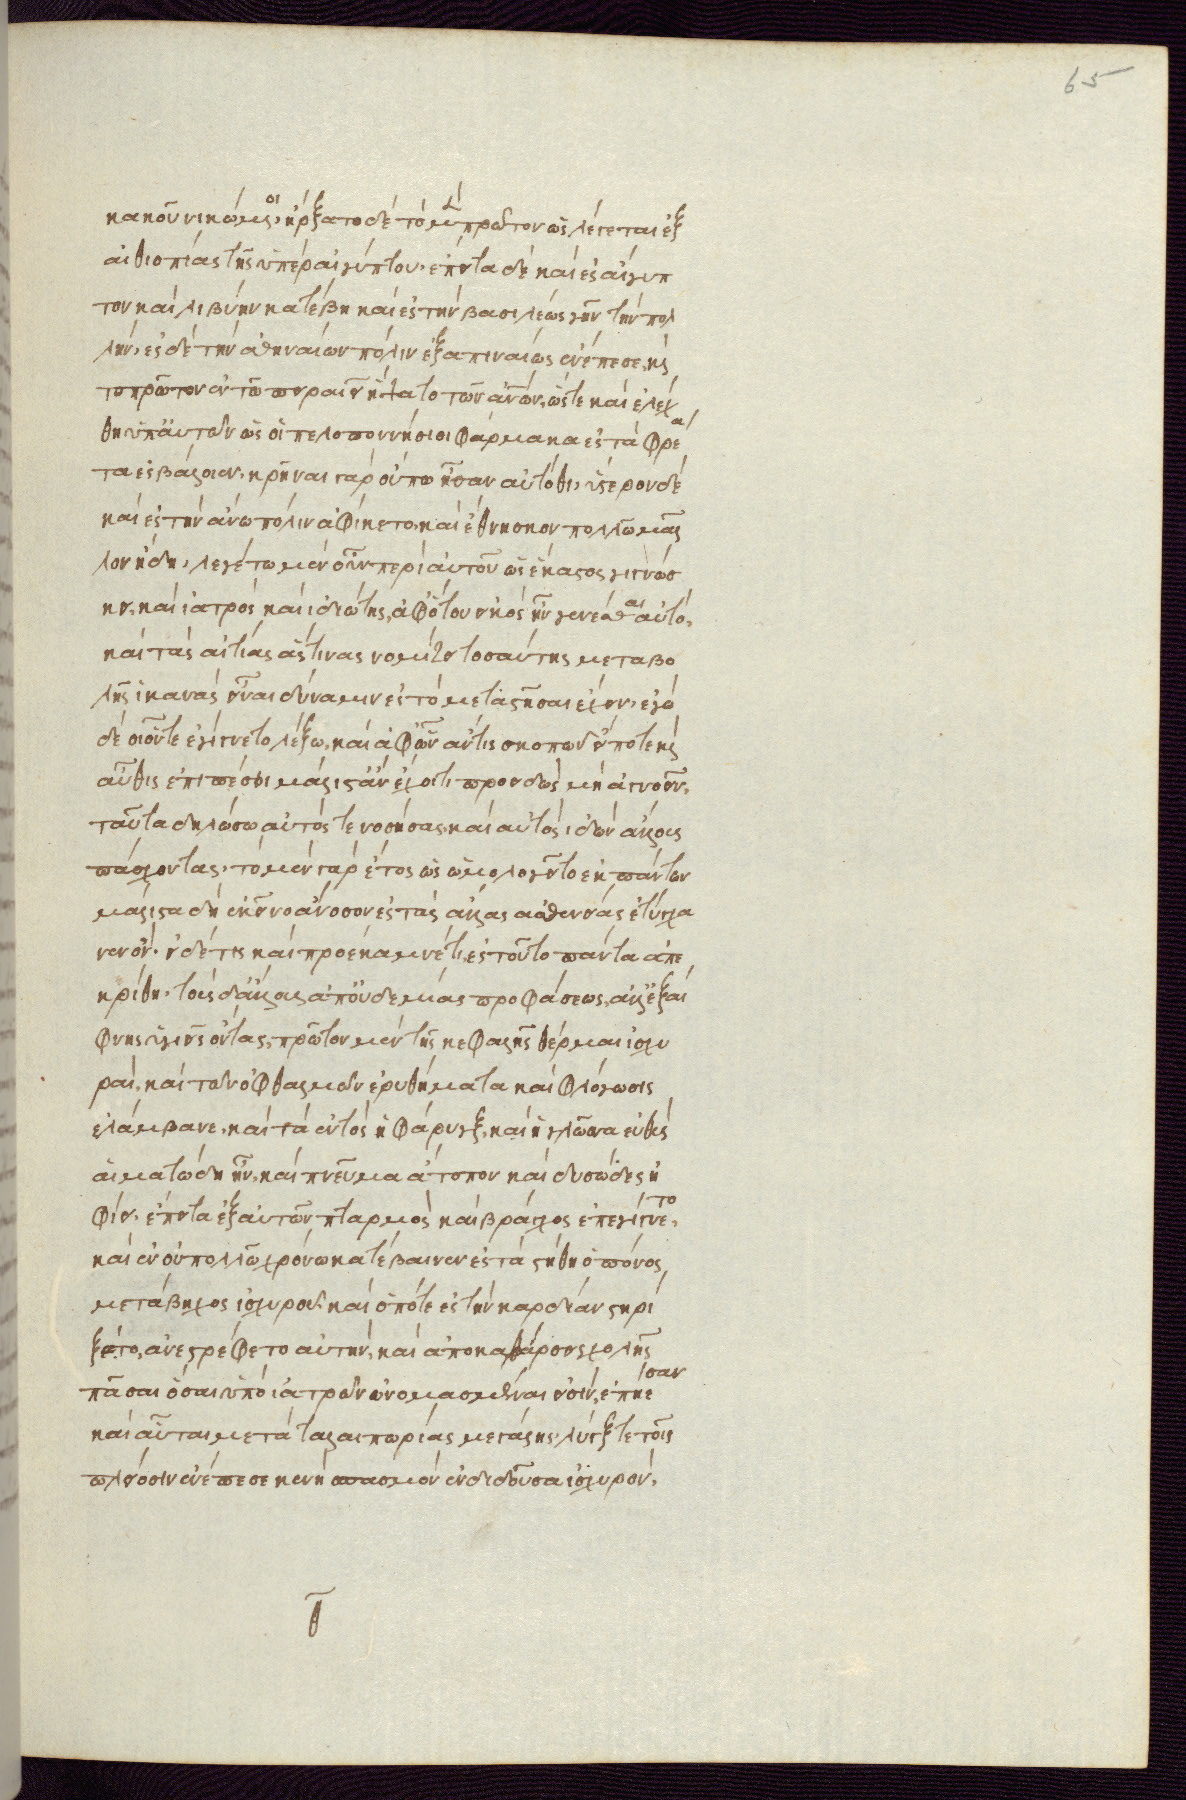 65
κακοῦ νικώμενοι· ἤρξατο δὲ τὸ μὲν πρῶτον ὡς λέγεται ἐξ
αἰθιοπίας τῆς ὑπὲρ αἰγύπτου· ἔπειτα δὲ καὶ ἐς αἴγυπ
τον καὶ λιβύην κατέβη καὶ ἐς τὴν βασιλέως γῆν τὴν πολ
λήν· ἐς δὲ τὴν ἀθηναίων πόλιν ἐξαπιναίως ἐνέπεσε, καὶ
τοπρῶτον ἐν τῶ πειραιεῖ ἥψατο τῶν ἀνων, ὥστε καὶ ἐλέχ
θη ὑπ' αὐτῶν ὡς οἱ πελοποννήσιοι φάρμακα ἐς τὰ φρέα
τα ἐσβάλοιεν· κρῆναι γὰρ οὔπω ἦσαν αὐτόθι· ὕστερον δὲ
καὶ ἐς τὴν ἄνω πόλιν ἀφίκετο, καὶ ἔθνησκον πολλῶ μᾶλ
λον ἤδη· λεγέτω μὲν οὖν περὶ αὐτοῦ ὡς ἕκαστος γιγνώσ
κει, καὶ ἰατρὸς καὶ ἰδιώτης, ἀφ' ὅτου εἰκὸς ἦν γενέσθαι αὐτό,
καὶ τὰς αἰτίας ἅστινας νομίζει τοσαύτης μεταβο
λῆς ἱκανὰς εἶναι δύναμιν ἐς τὸ μεταστῆσαι ἔχειν· ἐγὼ
δὲ οἷόν τε ἐγίγνετο λέξω, καὶ ἀφ' ὧν ἄν τις σκοπῶν εἴποτε καὶ
αὖθις ἐπιπέσοι μάλιστ' ἂν ἔχοι τι προειδὼς μὴ ἀγνοεῖν,
ταῦτα δηλώσω αὐτός τε νοσήσας, καὶ αὐτὸς ἰδὼν ἄλλους
πάσχοντας· τὸ μὲν γὰρ ἔτος ὡς ὡμολογεῖτο ἐκ πάντων
μάλιστα δὴ ἐκεῖνο ἄνοσον ἐς τὰς ἄλλας ἀσθενείας ἐτύγχα
νεν ὄν· εἰ δέ τις καὶ προέκαμνέ τι, ἐς τοῦτο πάντα ἀπε
κρίθη· τοὺς δ' ἄλλους ἀπ' οὐδεμιᾶς προφάσεως, ἀλλ' ἐξαί
φνης ὑγιεῖς ὄντας, πρῶτον μὲν τῆς κεφαλῆς θέρμαι ἰσχυ
ραὶ, καὶ τῶν ὀφθαλμῶν ἐρυθήματα καὶ φλόγωσις
ἐλάμβανε, καὶ τὰ ἐντὸς ἡ φάρυγξ, καὶ ἡ γλῶσσα εὐθὺς
αἱματώδη ἦν, καὶ πνεῦμα ἄτοπον καὶ δυσῶδες ἠ
φίει· ἔπειτα ἐξ αὐτῶν πταρμὸς καὶ βράγχος ἐπεγίγνετο,
καὶ ἐν οὐ πολλῶ χρόνω κατέβαινεν ἐς τὰ στήθη ὁ πόνος
μετὰ βηχὸς ἰσχυροῦ· καὶ ὁπότε ἐς τὴν καρδίαν στηρί
ξατο, ἀνέστρεφέ το αὐτὴν, καὶ ἀποκαθάρσεις χολῆς
πᾶσαι ὅσαι ὑπὸ ἰατρῶν ὠνομασμέναι εἰσὶν, ἐπήεισαν
καὶ αὗται μετὰ ταλαιπωρίας μεγάλης· λύγξ τε τοῖς
πλείοσιν ἐνέπεσε κενὴ σπασμὸν ἐνδιδοῦσα ἰσχυρόν·
θ